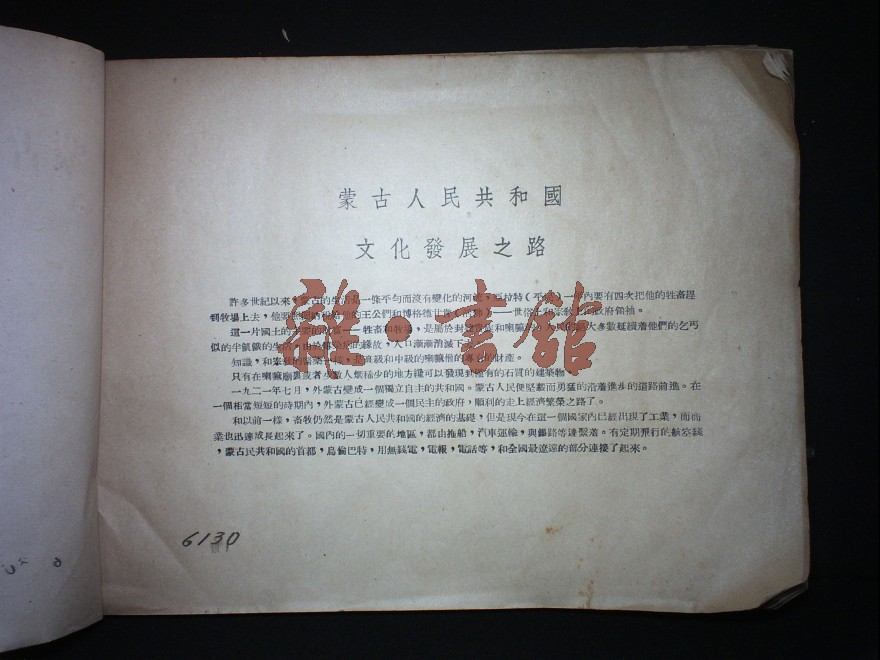 蒙古人民共和國
文化發展之路
許多世紀以來,蒙古的生活是一條平勻而沒有變化的河流,拉特(不一年內要有四次把他的牲畜趕
到牧場上去,他王公們和博格德世俗上和宗教上的政府領袖。
這一片國土的主要的財富——牲畜和牧場,是屬於封建和喇嘛大多數延續着他們的乞丐
似的半飢餓的生活。由於傳染病的緣故,人口漸漸消滅下
知識,和高級和中級的喇嘛僧的專有的財產。
只有在喇嘛廟裏或者少數人烟稀少的地方纔可以發現到稀有的石質的建築物。
一九二一年七月,外蒙古變成一個獨立自主的共和國。蒙古人民便堅毅而勇猛的沿着進步的道路前進。在
一個相當短短的時期內,外蒙古已經變成一個民主的政府,順利的走上經濟繁榮之路了。
和以前一樣,畜牧仍然是蒙古人民共和國的經濟的基礎,但是現今在這一個國家內已經出現了工業,而商
業也迅速成長起來了。國內的一切重要的地區,都由拖船,汽車運輸,與鐵路等連繫着。有定期飛行的航空綫
,蒙古民共和國的首都,烏倫巴特,用無綫電,電報,電話等,和全國最遼遠的部分連接了起來。
雜·書館
6130